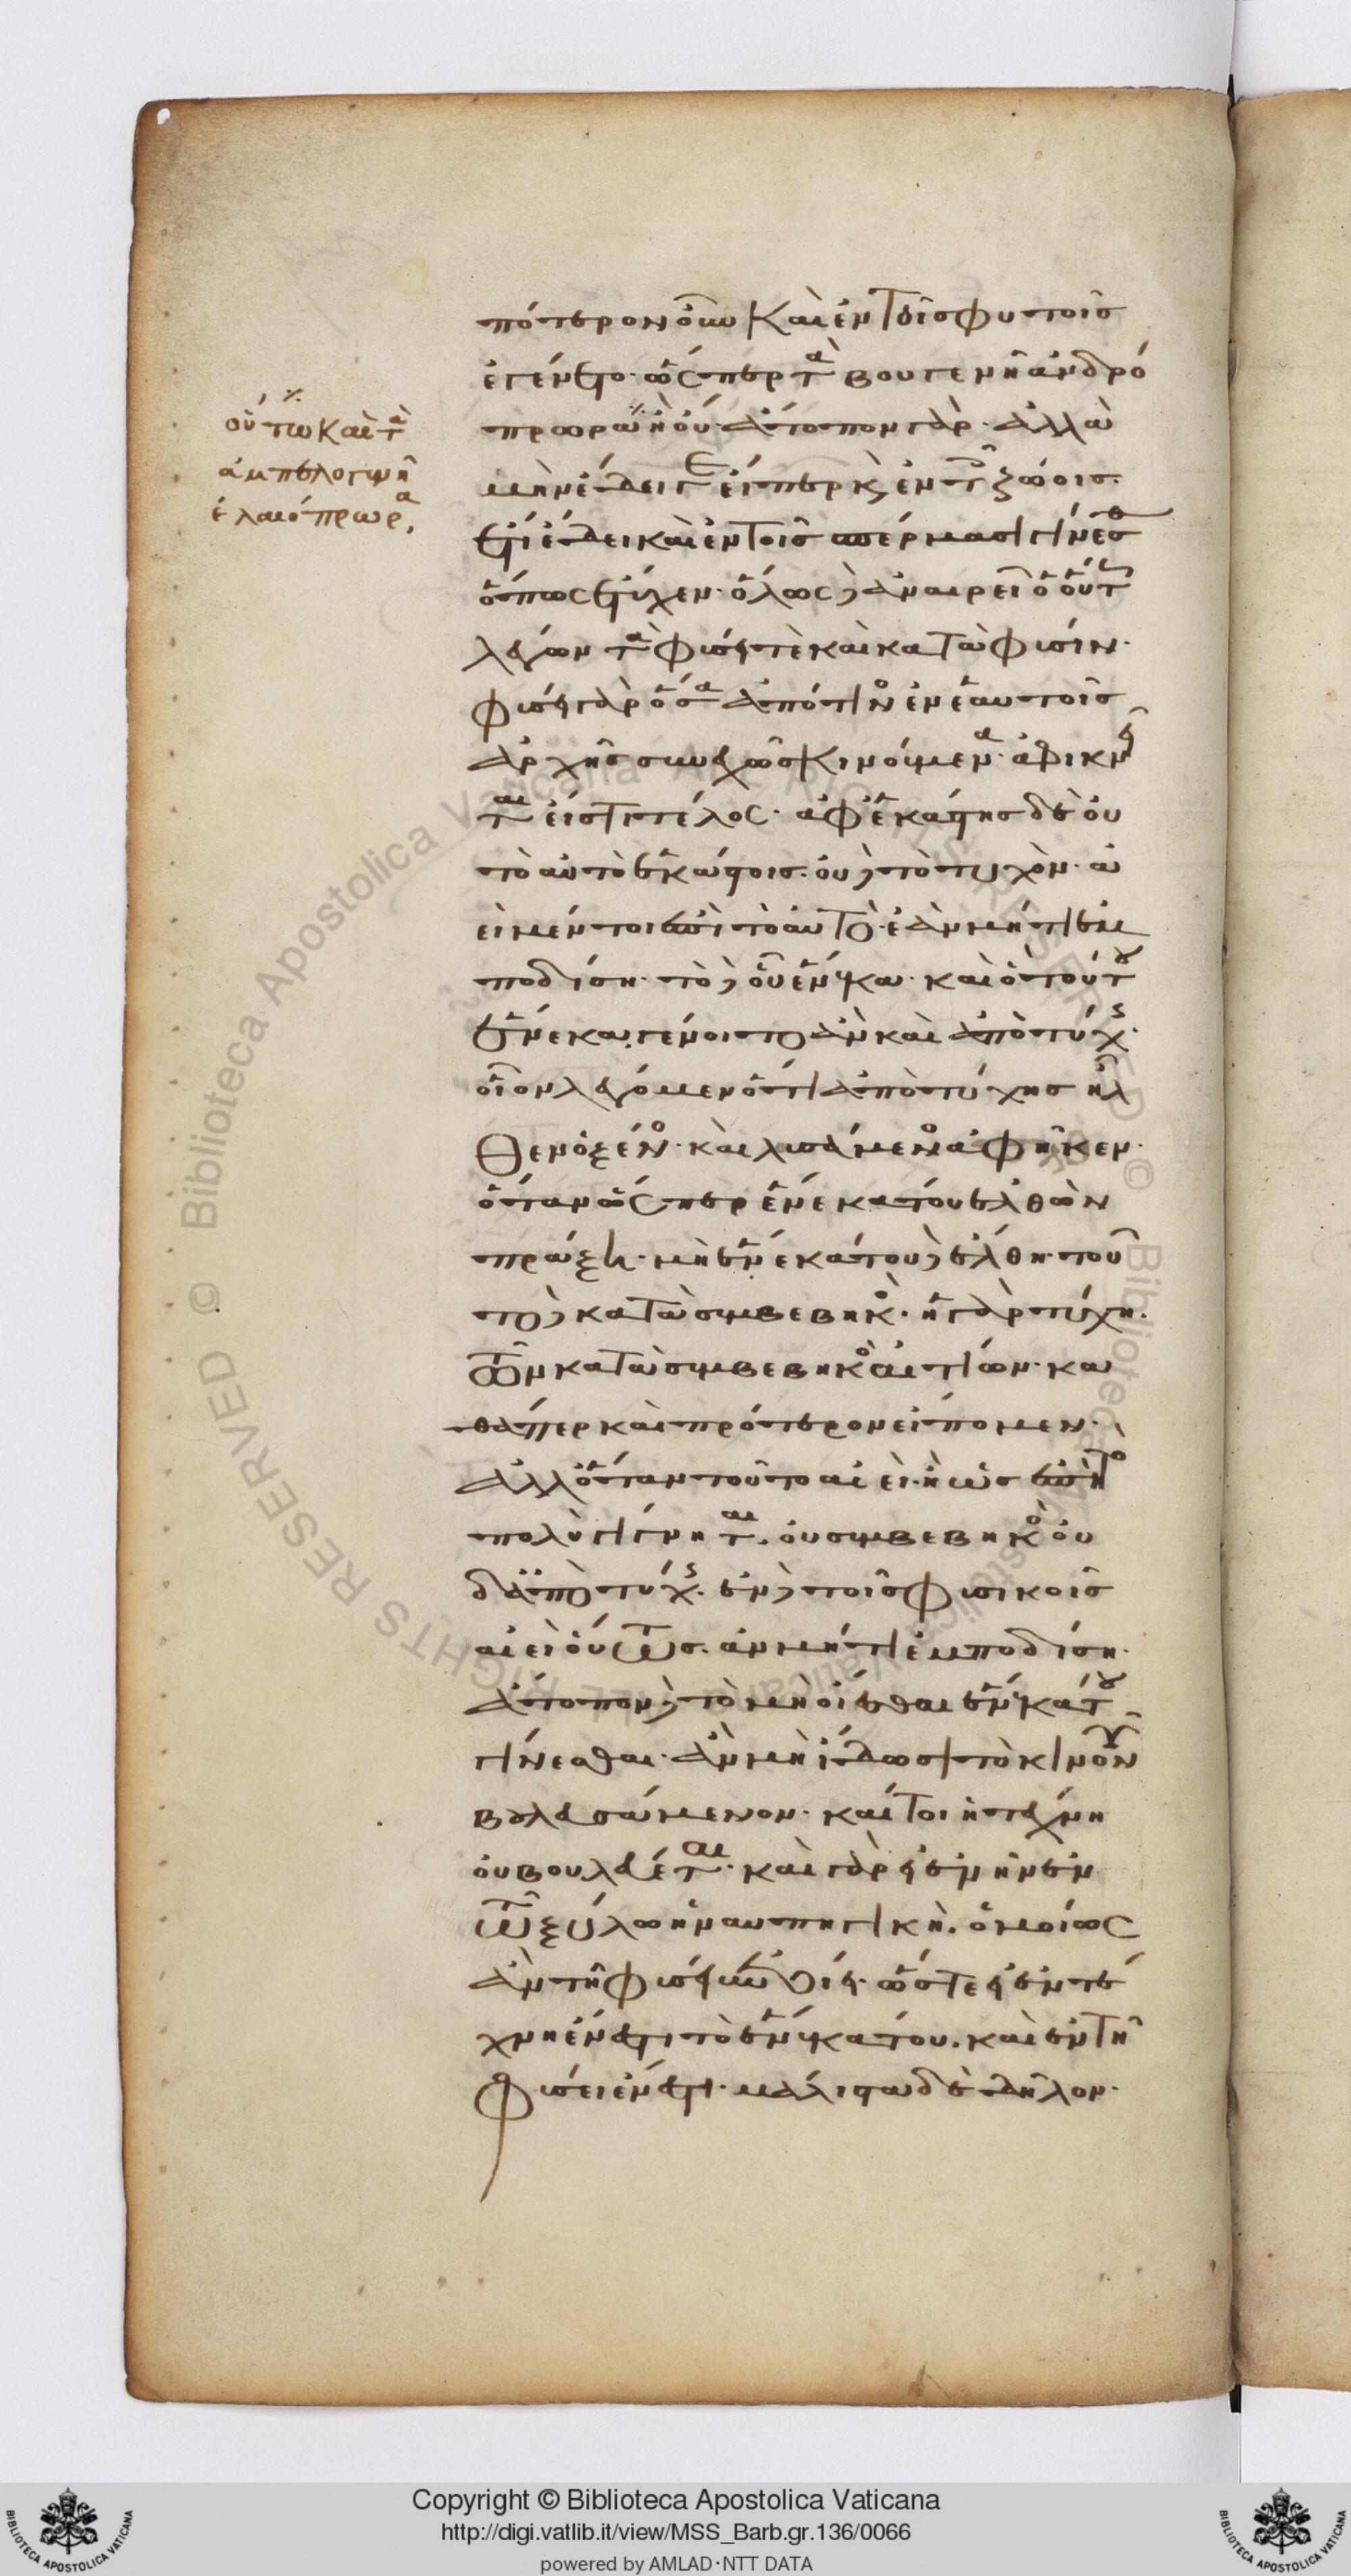 οὕτω καὶ τὰ
ἀμπελογενῆ
ἐλαιόπρωρα,
πότερον οὖν καὶ ἐν τοῖς φυτοῖς
ἐγένετο· ὥσπερ τὰ βουγενῆ ἀνδρό
πρωρα ἢ οὔ· ἄτοπον γὰρ· ἀλλὰ
μὴν ἔδει γε εἴπερ κ(αὶ) ἐν τοῖς ζώοις.
ἔτι ἔδει καὶ ἐν τοῖς σπέρμασι γίνεσθ
ὅπως ἔτυχεν· ὅλως δ' ἀναιρεῖ ὁ οὕτως
λέγων τὰ φύσει τὲ καὶ κατὰ φύσιν·
φύσει γὰρ ὅσα ἀπό τινος ἐν ἑαυτοῖς
ἀρχῆς συνεχῶς κινούμενα ἀφικνεῖ
ται εἴς τι τέλος· ἀφ' ἑκάστης δὲ οὐ
τὸ αὐτὸ ἑκάστοις· οὐδὲ τὸ τυχὸν· ἀ
εὶ μέντοι ἐπὶ τὸ αὐτὸ· ἐὰν μή τι ἐμ
ποδίση· τὸ δὲ οὗ ἕνεκα· καὶ ὃ τούτου
ἕνεκα, γένοιτο ἂν καὶ ἀπὸ τύχης·
οἷον λέγομεν ὅτι ἀπὸ τύχης ἦλ
θεν ὁ ξένος· καὶ λυσάμενος ἀφῆκεν·
ὅταν ὥσπερ ἕνεκα τούτου ἐλθὼν
πράξη· μὴ ἕνεκα τούτου δὲ ἔλθη· τοῦ
το δὲ κατὰ συμβεβηκός· ἡ γὰρ τύχη·
τῶν κατὰ συμβεβηκὸς αἰτίων· κα
θάπερ καὶ πρότερον εἴπομεν·
ἀλλ' ὅταν τοῦτο αἰεὶ· ἢ ὡς ἐπὶ τὸ
πολὺ γίγνηται· οὐ συμβεβηκὸς οὐ
δ' ἀπὸ τύχης· ἐν δὲ τοῖς φυσικοῖς
αἰεὶ οὕτως· ἂν μή τι ἐμποδίση·
ἄτοπον δὲ τὸ μὴ οἴεσθαι ἕνεκά του
γίνεσθαι· ἂν μὴ ἴδωσι τὸ κινοῦν
βουλευσάμενον· καίτοι ἡ τέχνη
οὐ βουλεύεται· καὶ γὰρ εἰ ἐνῆν ἐν
τῷ ξύλω ἡ ναυπηγικὴ· ὁμοίως
ἂν τῆ φύσει ἐποίει· ὥστε εἰ ἐν τέ
χνη ἔνεστι τὸ ἕνεκά του· καὶ ἐν τῆ
φύσει ἔνεστι· μάλιστα δὲ δῆλον·
Copyright © Biblioteca Apostolica Vaticana
http://digi.vatlib.it/view/MSS_Barb.gr.136/0066
powered by AMLAD·NTT DATA